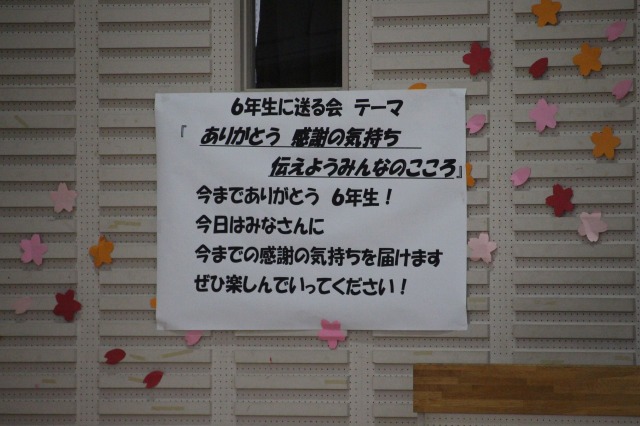 6年生に送る会 テーマ
『 ありがとう 感謝の気持ち
伝えようみんなのこころ』
今までありがとう 6年生！
今日はみなさんに
今までの感謝の気持ちを届けます
ぜひ楽しんでいってください！